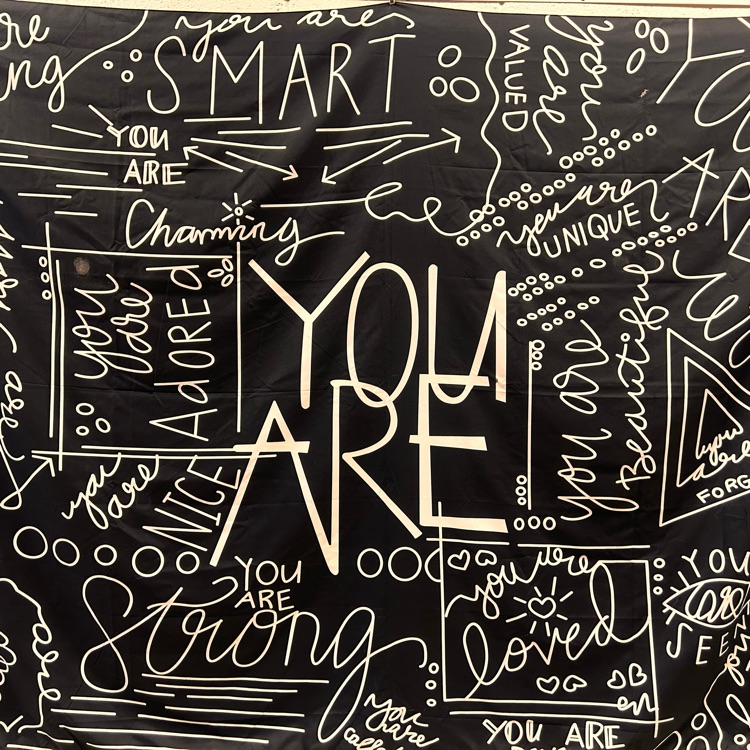 you are
SMART
YOU
ARE
Charming
VALUED
you
are
you are
UNIQUE
you
are
AdOREd
YOU
ARE
you are
Beautiful
you
are
NICE
you
are
FORG
YOU
ARE
Strong
you are
loved
YOU
are
SEEN
you
are
YOU ARE